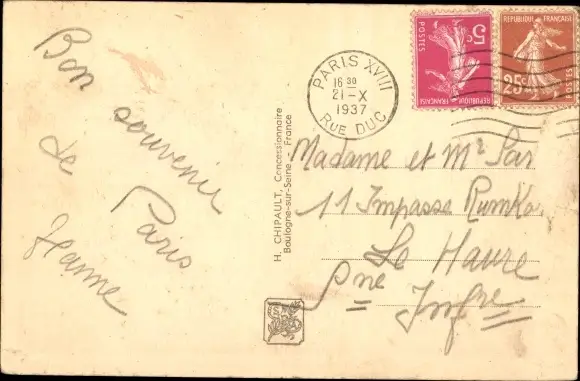 Bon souvenir
de Paris
Jeanne
H. CHIPAULT, Concessionnaire
Boulogne-sur-Seine - France
PARIS XVIII
16 30
21 - X
1937
RUE DUC
5c
POSTES
REPUBLIQUE FRANÇAISE
REPUBLIQUE FRANÇAISE
25c
POSTES
Madame et Mr
11 Impasse
Le Havre
Sne Infre